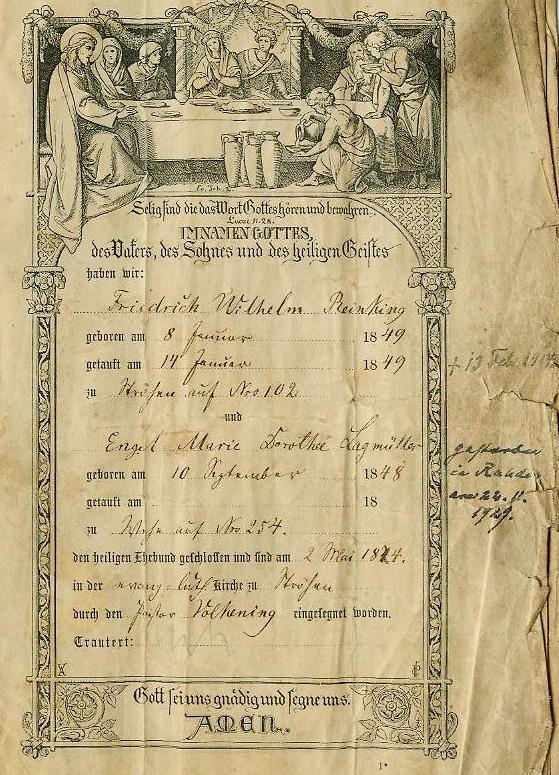 Ev. Joh. 2.
Selig sind die das Wort Gottes hören und bewahren.
Lucae 11. 28.
IM NAMEN GOTTES,
des Vaters, des Sohnes und des heiligen Geistes
haben wir:
Friedrich Wilhelm Reinking
geboren am 8 Januar 1849
getauft am 14 Januar 1849
zu Ströhen auf Nro 102
und
Engel Marie Dorothee Lagmüller
geboren am 10 September 1848
getauft am 18
zu Wehe auf Nro 254.
den heiligen Ehebund geschlossen und sind am 2 Mai 1874.
in der evang-luth Kirche zu Ströhen
durch den Pastor Volkening eingesegnet worden.
Trautext:
Gott sei uns gnädig und segne uns.
AMEN.
† 13 Feb.
gestorben
in Rahden
am 22. 11.
1929.
1*